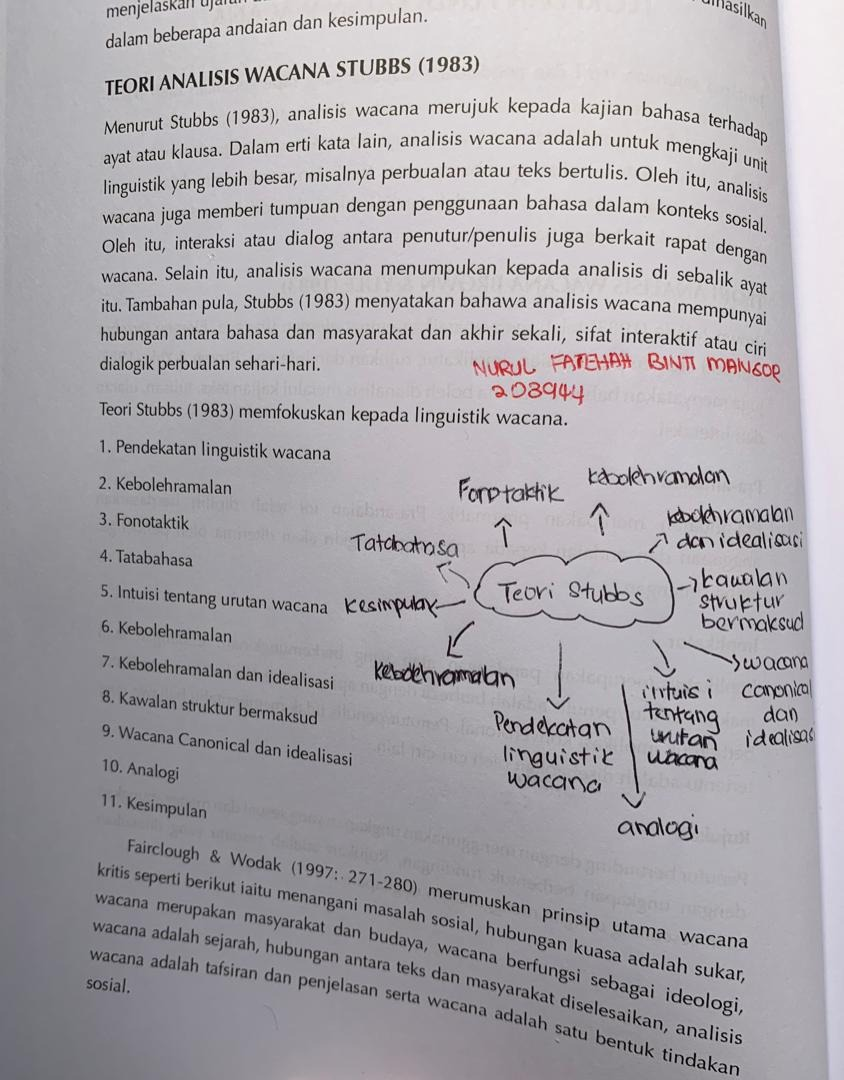 menjelaskan
dalam beberapa andaian dan kesimpulan.
TEORI ANALISIS WACANA STUBBS (1983)
Menurut Stubbs (1983), analisis wacana merujuk kepada kajian bahasa terhadap
ayat atau klausa. Dalam erti kata lain, analisis wacana adalah untuk mengkaji unit
linguistik yang lebih besar, misalnya perbualan atau teks bertulis. Oleh itu, analisis
wacana juga memberi tumpuan dengan penggunaan bahasa dalam konteks sosial.
Oleh itu, interaksi atau dialog antara penutur/penulis juga berkait rapat dengan
wacana. Selain itu, analisis wacana menumpukan kepada analisis di sebalik ayat
itu. Tambahan pula, Stubbs (1983) menyatakan bahawa analisis wacana mempunyai
hubungan antara bahasa dan masyarakat dan akhir sekali, sifat interaktif atau ciri
dialogik perbualan sehari-hari.
NURUL FATEHAH BINTI MANSOR
203944
Teori Stubbs (1983) memfokuskan kepada linguistik wacana.
1. Pendekatan linguistik wacana
2. Kebolehramalan
3. Fonotaktik
4. Tatabahasa
5. Intuisi tentang urutan wacana
6. Kebolehramalan
7. Kebolehramalan dan idealisasi
8. Kawalan struktur bermaksud
9. Wacana Canonical dan idealisasi
10. Analogi
11. Kesimpulan
Fonotaktik
kebolehramalan
kebolehramalan
dan idealisasi
Tatabahasa
Teori Stubbs
kawalan
struktur
bermaksud
kesimpulan
kebolehramalan
Pendekatan
linguistik
wacana
intuisi
tentang
urutan
wacana
wacana
canonical
dan
idealisasi
analogi
Fairclough & Wodak (1997: 271-280) merumuskan prinsip utama wacana
kritis seperti berikut iaitu menangani masalah sosial, hubungan kuasa adalah sukar,
wacana merupakan masyarakat dan budaya, wacana berfungsi sebagai ideologi,
wacana adalah sejarah, hubungan antara teks dan masyarakat diselesaikan, analisis
wacana adalah tafsiran dan penjelasan serta wacana adalah satu bentuk tindakan
sosial.